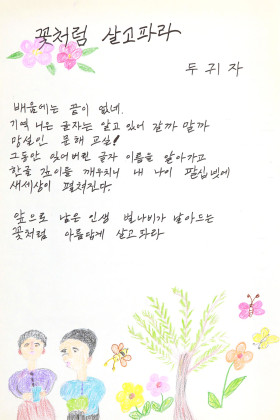 꽃처럼 살고파라
두귀자
배움에는 끝이 없네.
기역 니은 글자는 알고 있어 갈까 말까
망설인 문해 교실!
그동안 잊어버린 글자 이름을 알아가고
한글 깊이를 깨우치니 내 나이 팔십넷에
새세상이 펼쳐진다.
앞으로 남은 인생 벌나비가 날아드는
꽃처럼 아름답게 살고파라